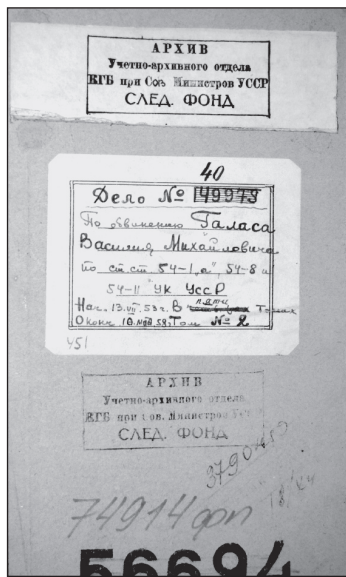 АРХИВ
Учетно-архивного отдела
КГБ при Сов. Министров УССР
СЛЕД. ФОНД
40
Дело № 49973
По обвинению Галаса
Василия Михайловича
по ст ст. 54-1 „а", 54-8 и
54-11 УК УССР
Нач. 13.VII.53 г. В пяти Томах
Оконч. 10.VIII.58, Том № 2
451
АРХИВ
Учетно-архивного отдела
КГБ при Сов. Министров УССР
СЛЕД. ФОНД
74914 фп
56694